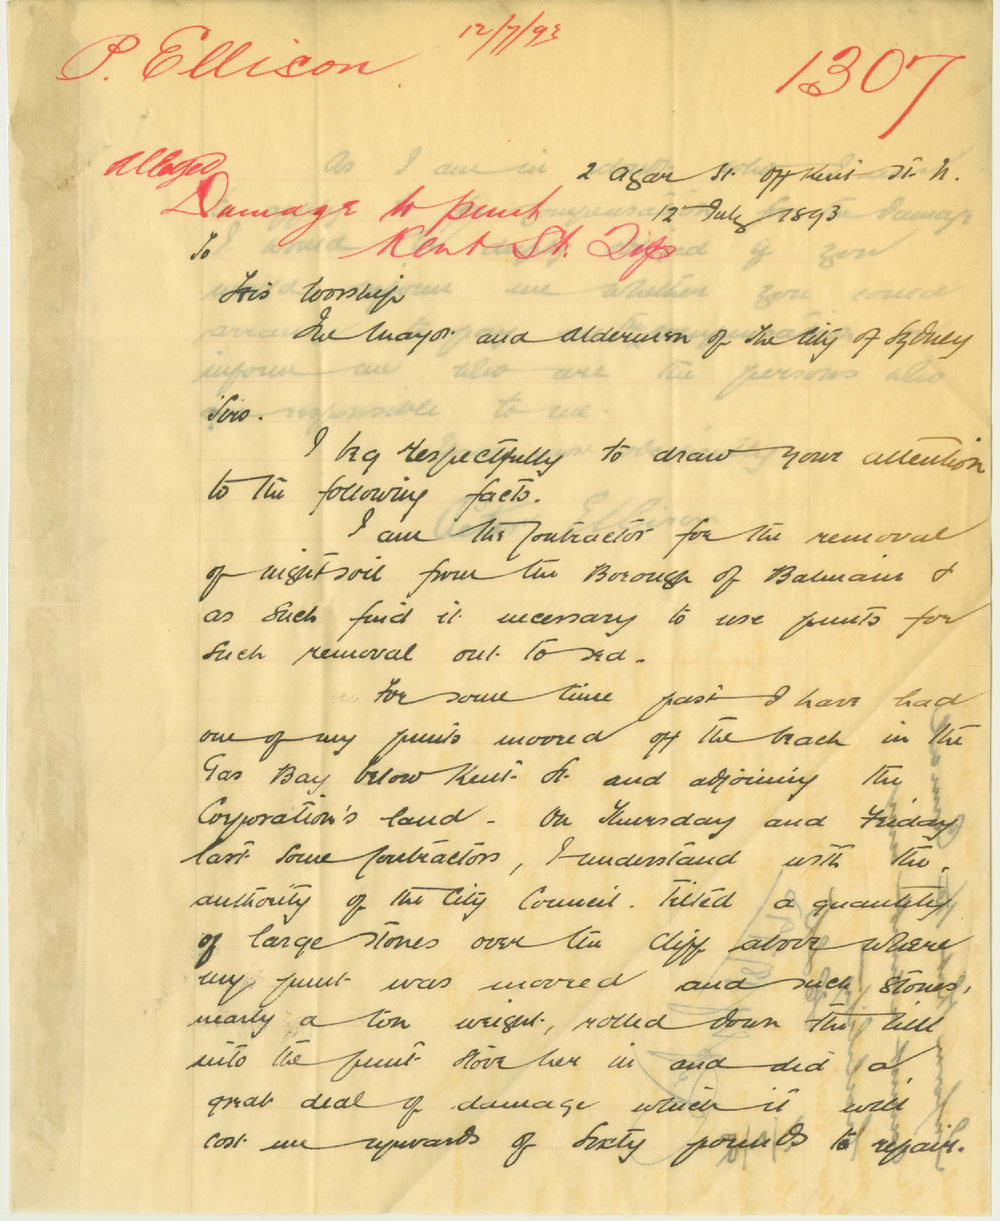 12/7/93
P. Ellison
1307
Alleged
Damage to punt
Kent St. Tip
2 Agar St. off Kent St. N.
12 July 1893
To
His Worship
The Mayor and Aldermen of the City of Sydney
Sirs.
I beg respectfully to draw your attention
to the following facts.
I am the Contractor for the removal
of nightsoil from the Borough of Balmain &
as such find it necessary to use punts for
such removal out to sea.
For some time past I have had
one of my punts moored off the beach in the
Gas Bay below Kent St. and adjoining the
Corporation's land - On Thursday and Friday
last some Contractors, I understand with the
authority of the City Council. tilted a quantity
of large stones over the cliff above where
my punt was moored and such stones,
nearly a ton weight, rolled down the hill
into the punt stove her in and did a
great deal of damage which it will
cost me upwards of Sixty pounds to repair.